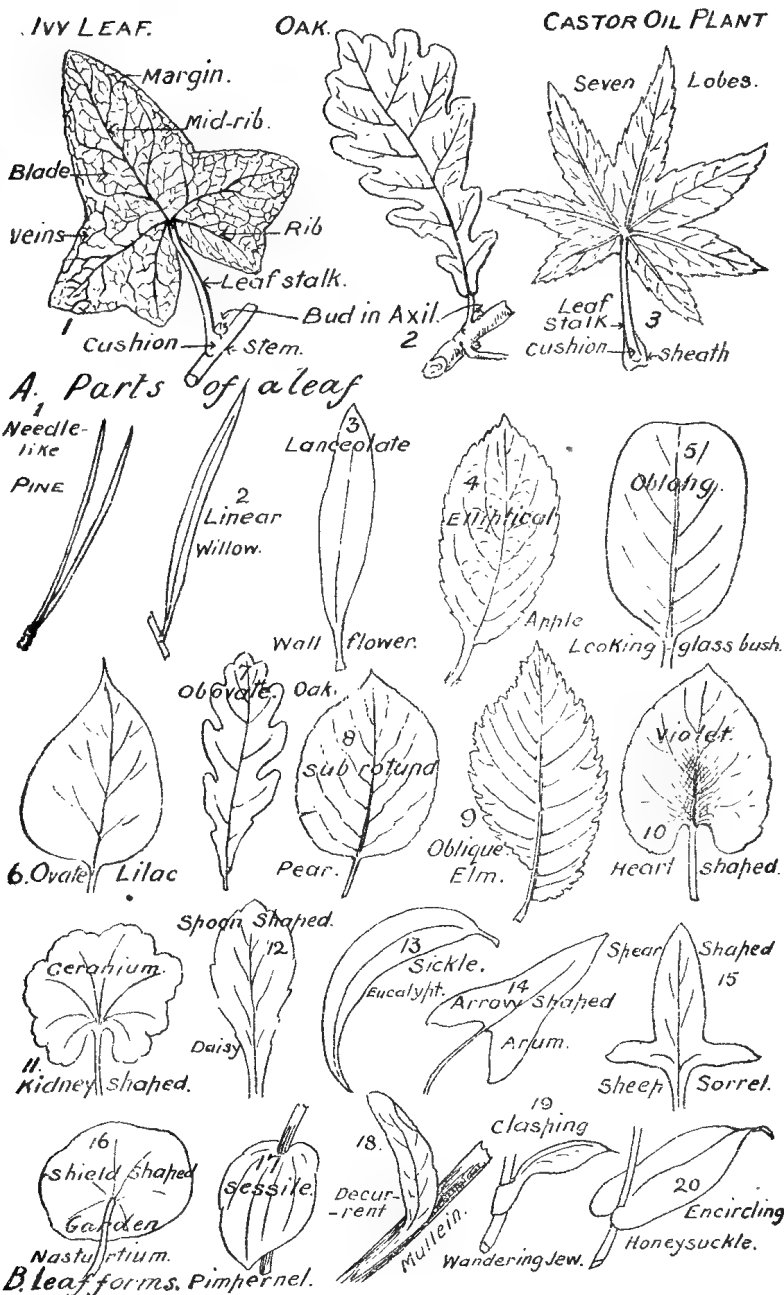 IVY LEAF.
OAK.
CASTOR OIL PLANT
Margin.
Mid-rib.
Blade
Veins
Rib
Leaf stalk.
Bud in Axil.
Cushion
Stem.
1
2
Seven Lobes.
Leaf
Stalk
3
Cushion
Sheath
A. Parts of a leaf
1
Needle-
like
PINE
2
Linear
Willow.
3
Lanceolate
Wall flower.
4
Elliptical
Apple
5
Oblong.
Looking glass bush.
6. Ovate Lilac
7
Obovate. Oak.
8
Sub rotund
Pear.
9
Oblique
Elm.
Violet.
10
Heart shaped.
Geranium.
11.
Kidney shaped.
Spoon Shaped.
12
Daisy
13
Sickle.
Eucalypt.
14
Arrow Shaped
Arum.
Spear Shaped
15
Sheep Sorrel.
16
Shield Shaped
Garden
Nasturtium.
17
Sessile.
Pimpernel.
18.
Decur-
-rent
Mullein.
19
Clasping
Wandering Jew.
20
Encircling
Honeysuckle.
B. Leaf forms.